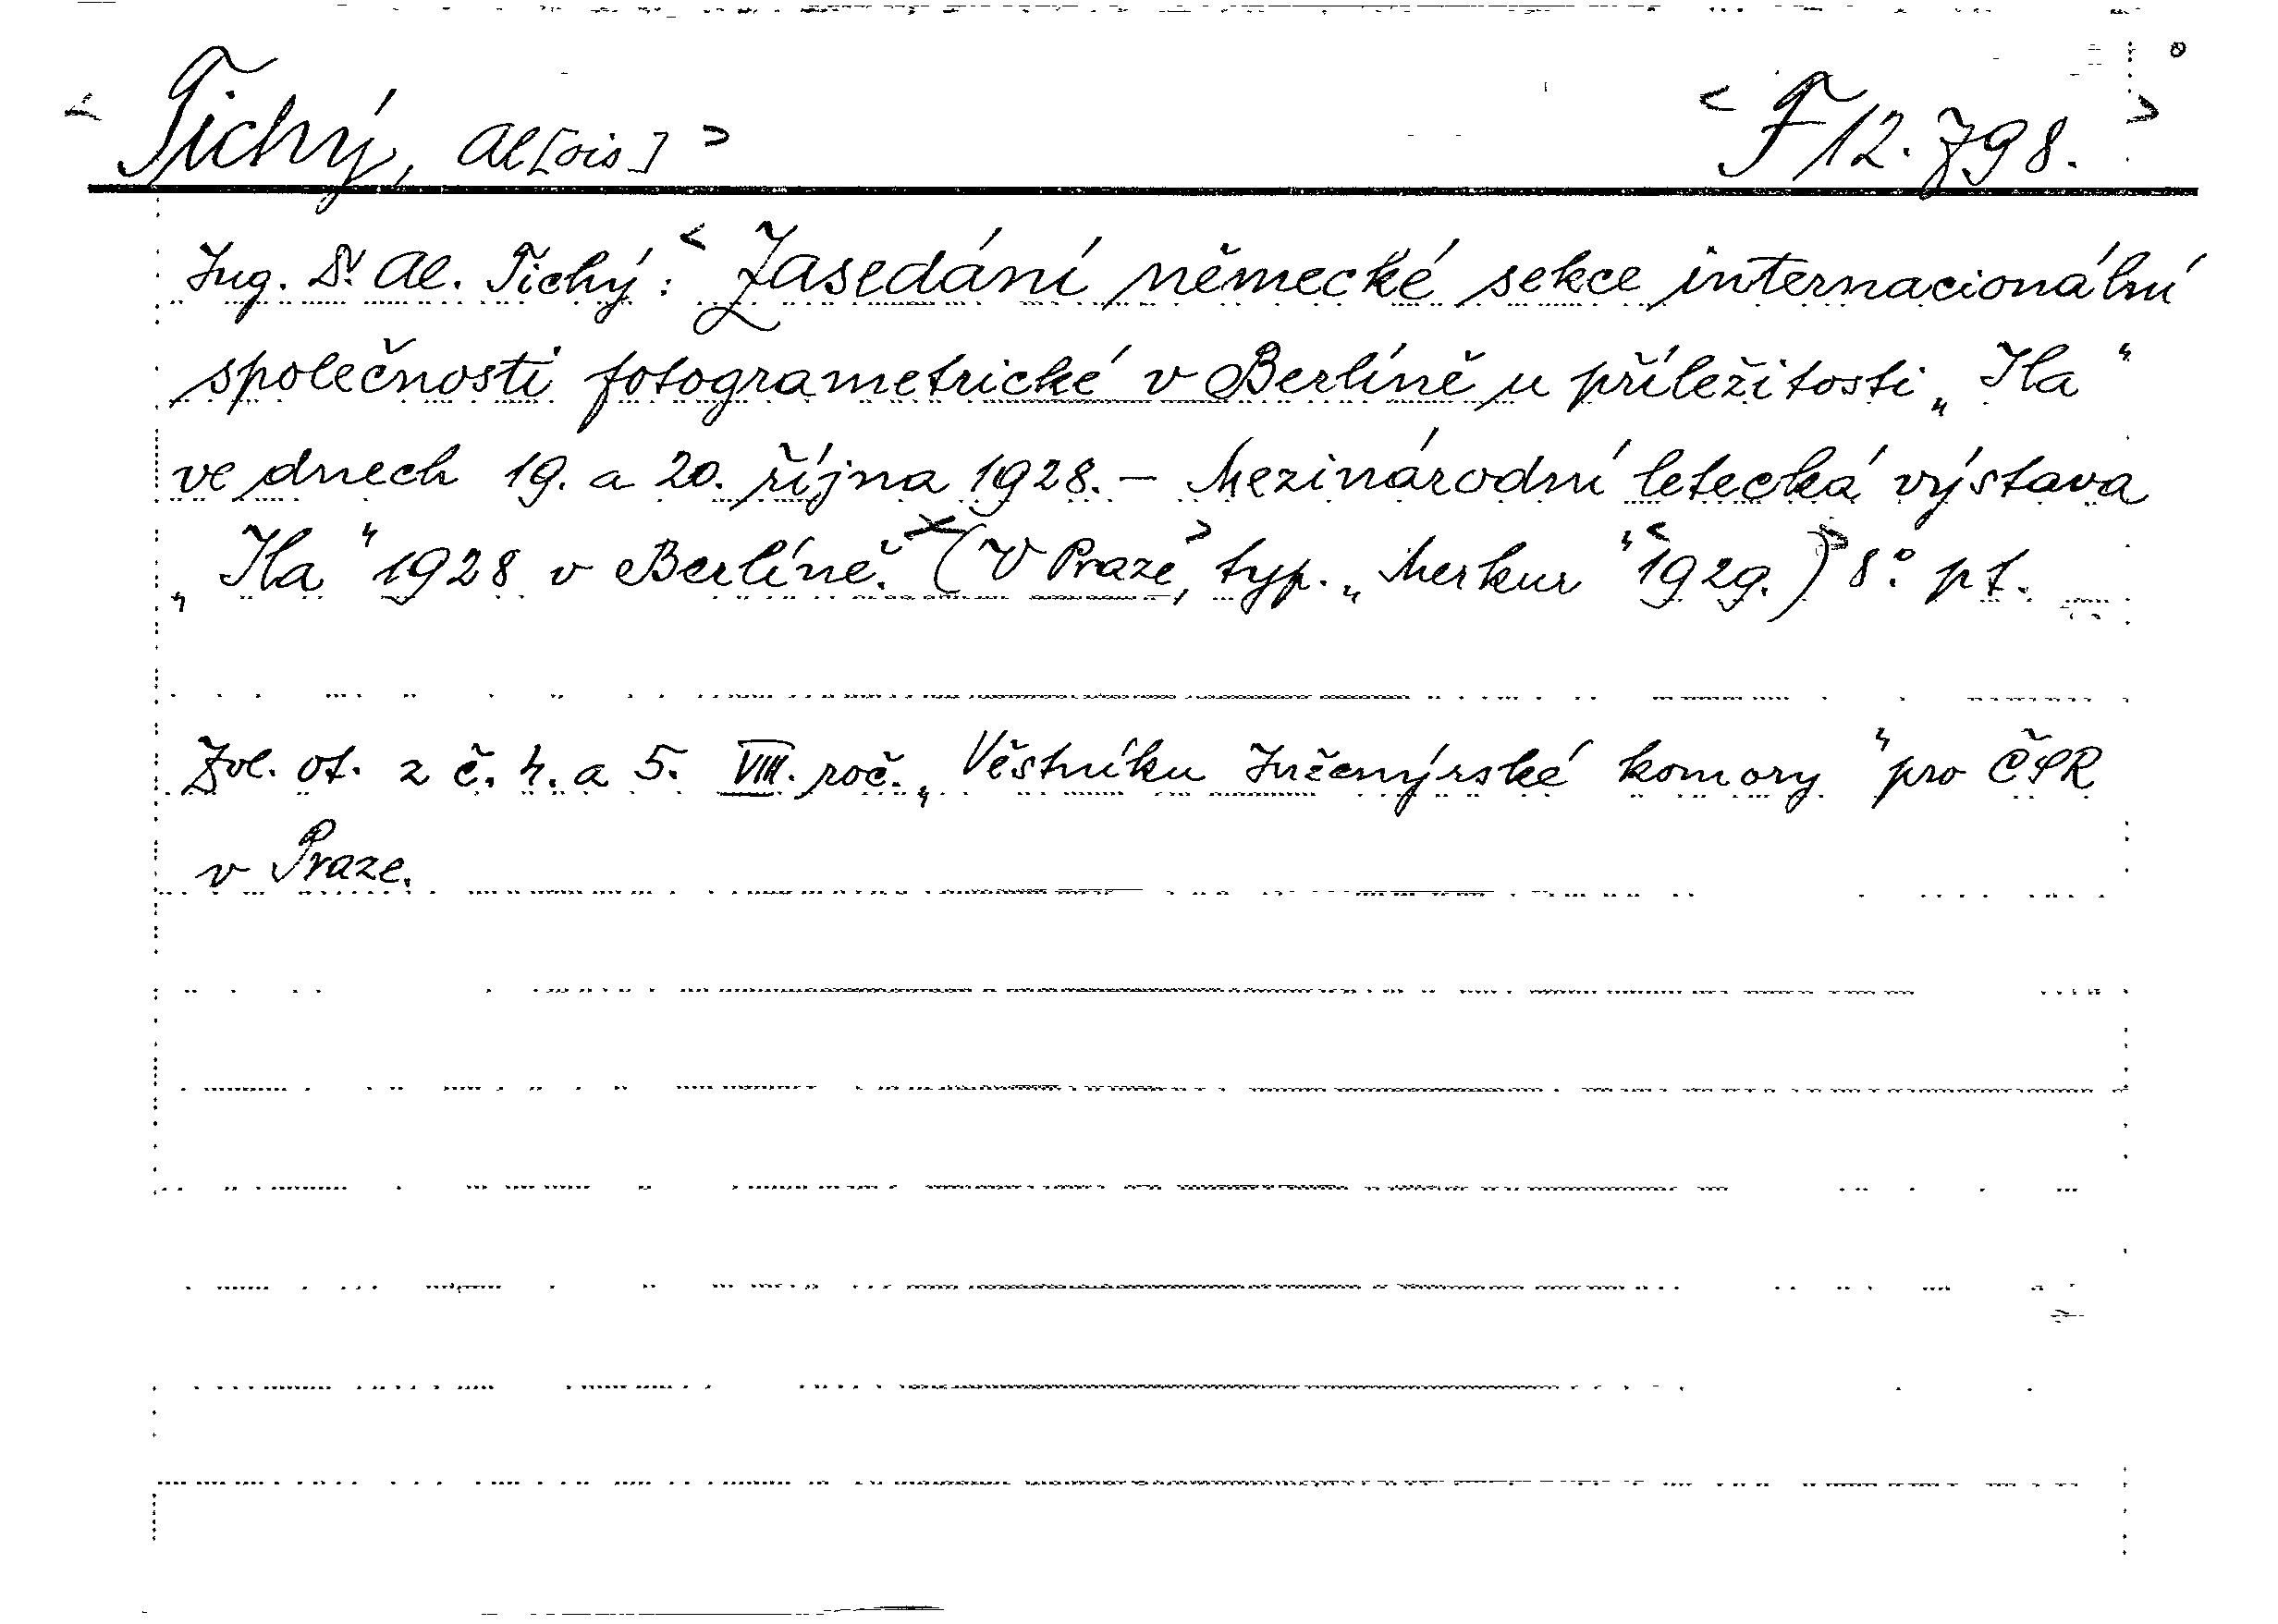 < Tichý, Al[ois] > < F 12.798. >
Ing. Dr. Al. Tichý: < Zasedání německé sekce internacionální
společnosti fotogrametrické v Berlíně u příležitosti „Ila“
ve dnech 19. a 20. října 1928. – Mezinárodní letecká výstava
„Ila“ 1928 v Berlíně. (V Praze, > typ. „Merkur“ < 1929.) > 8°. pt.
Zvl. ot. z č. 4. a 5. VIII. roč. „Věstníku Inženýrské komory“ pro ČSR
v Praze.